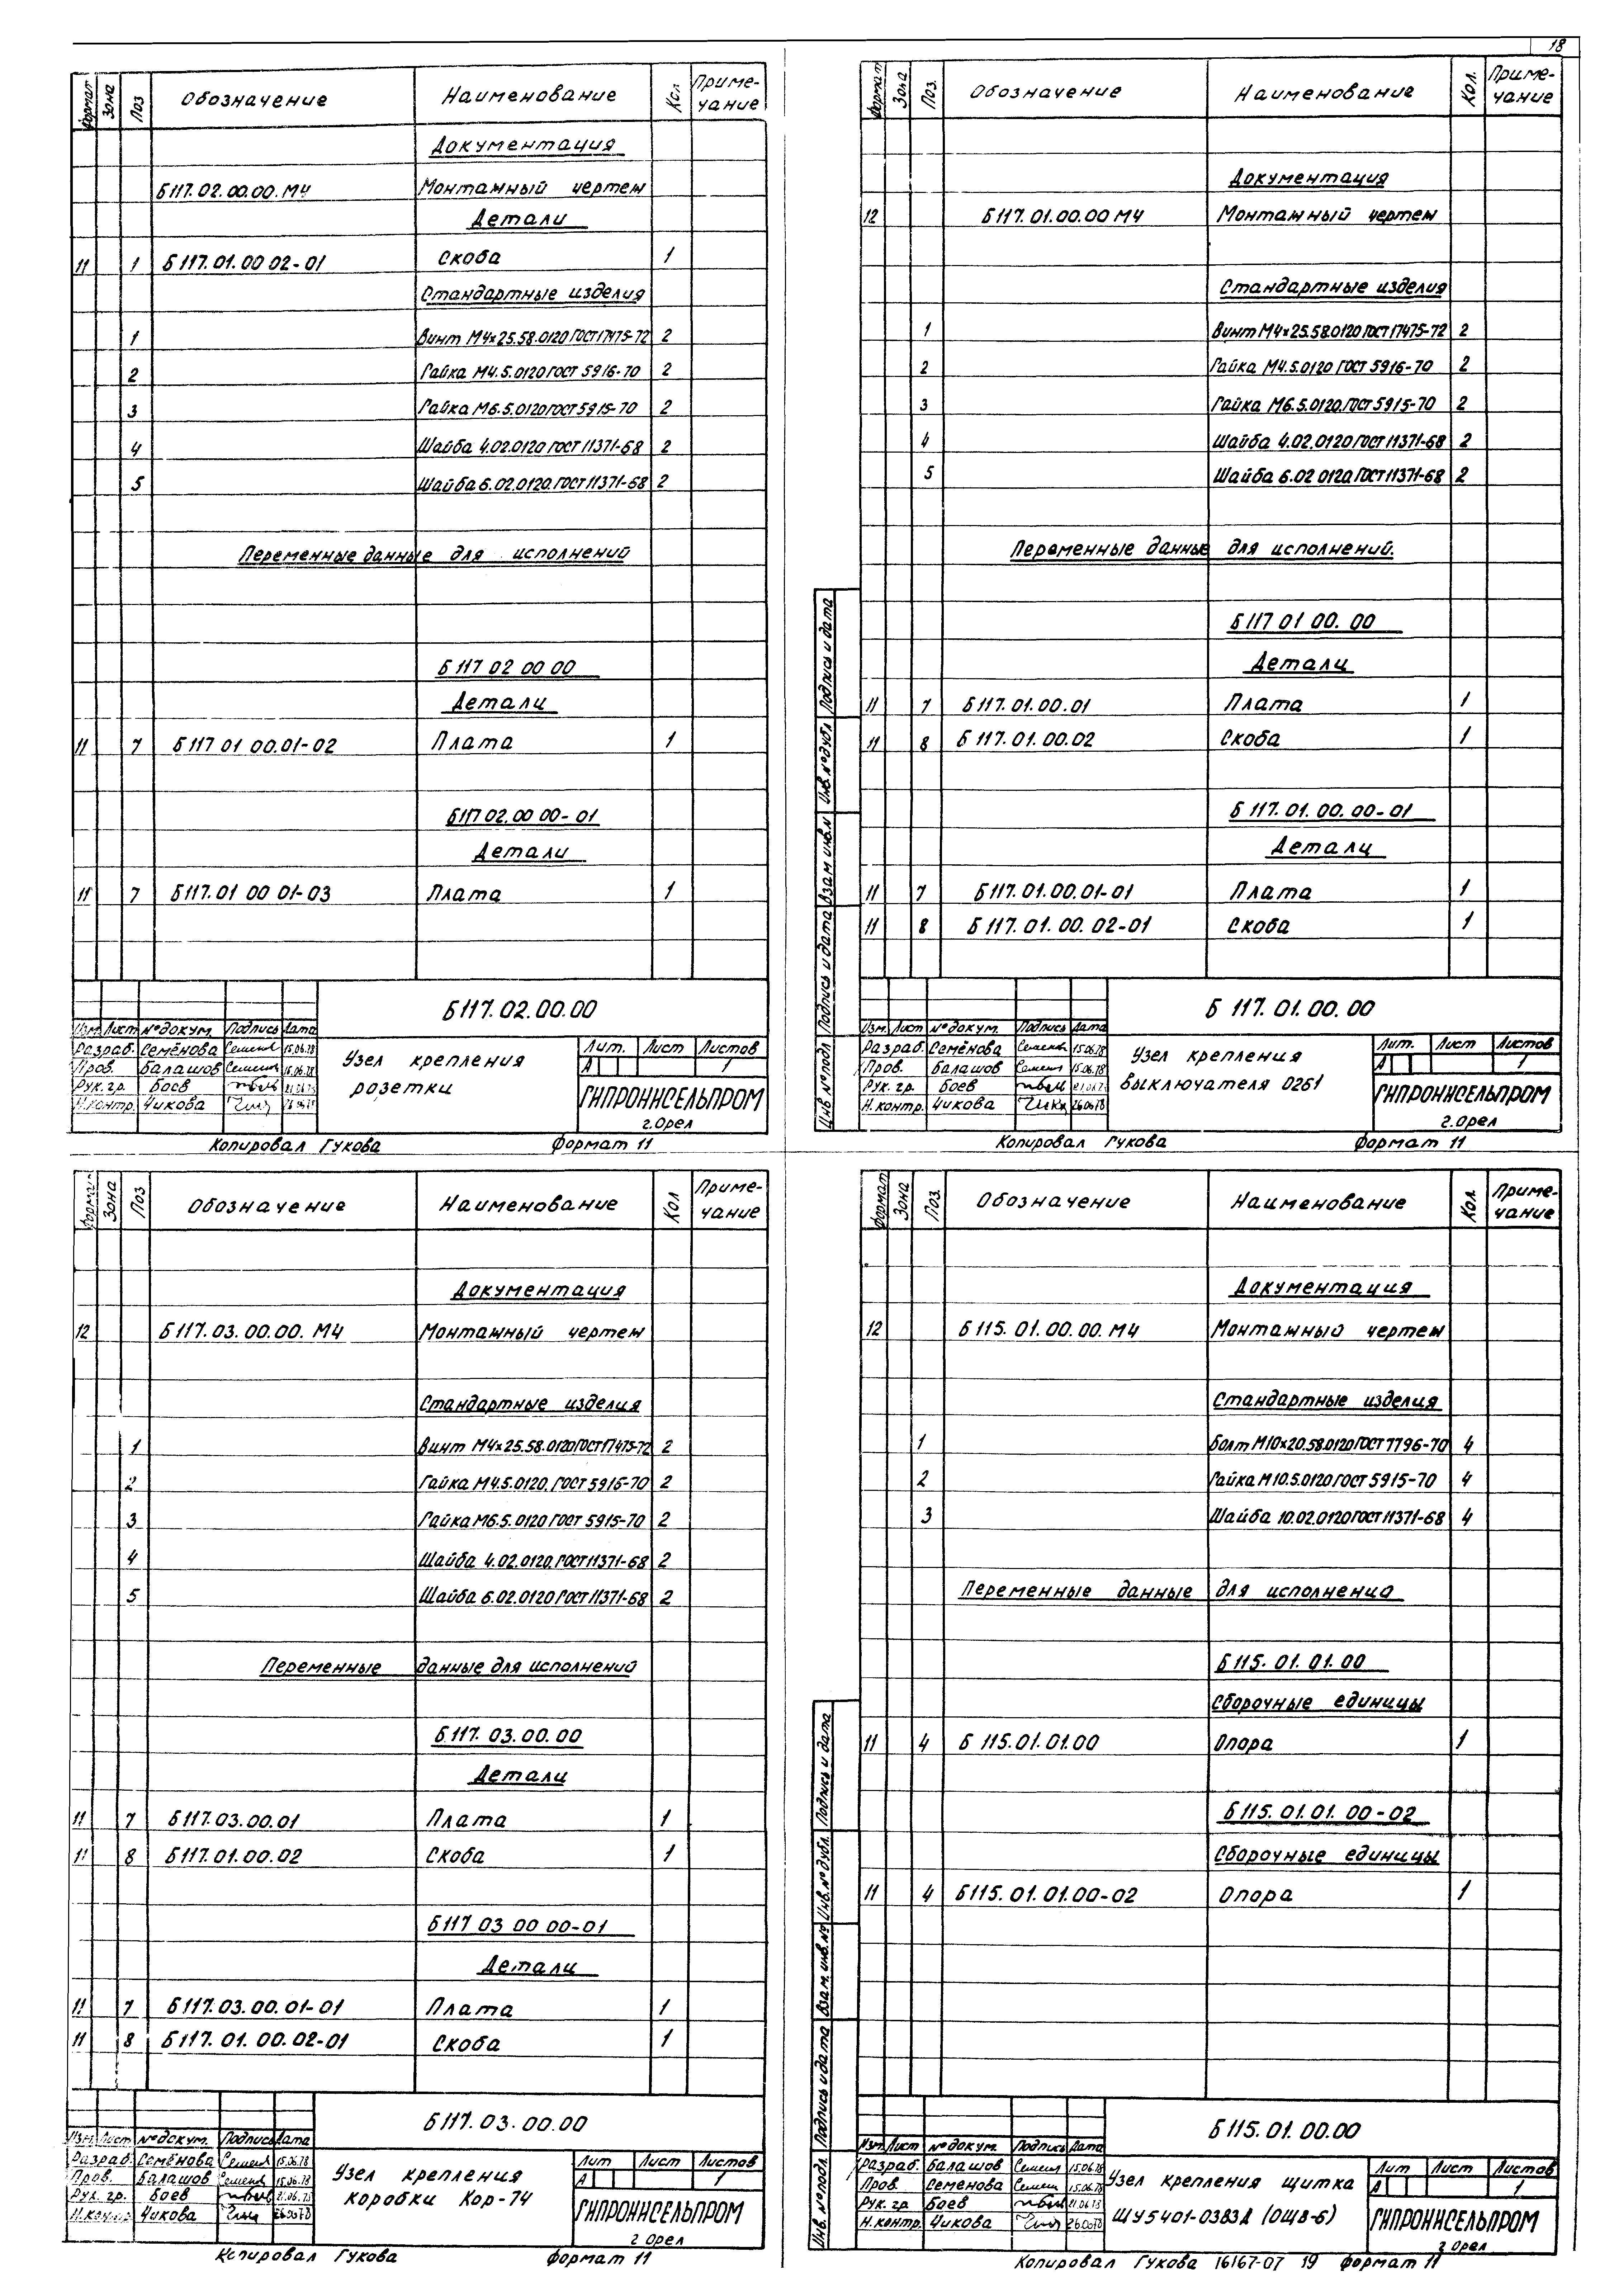 18
Формат Зона Поз Обозначение Наименование Кол Примечание
Документация
Б117.02.00.00.МЧ Монтажный чертеж
Детали
11 1 Б117.01.00 02-01 Скоба 1
Стандартные изделия
1 Винт М4х25.58.0120 ГОСТ17475-72 2
2 Гайка М4.5.0120 ГОСТ 5916-70 2
3 Гайка М6.5.0120 ГОСТ 5915-70 2
4 Шайба 4.02.0120 ГОСТ 11371-68 2
5 Шайба 6.02.0120 ГОСТ 11371-68 2
Переменные данные для исполнений
Б117 02 00 00
Детали
11 7 Б117 01 00.01-02 Плата 1
Б117 02.00 00-01
Детали
11 7 Б117.01 00 01-03 Плата 1
Б117.02.00.00
Изм. Лист № докум. Подпись Дата
Разраб. Семёнова 15.06.78
Пров. Балашов 15.06.78
Рук. гр. Боев
Н.контр. Чикова 26.06.78
Узел крепления
розетки
Лит. Лист Листов
А 1
ГИПРОНИСЕЛЬПРОМ
г.Орел
Копировал Гукова Формат 11
Формат Зона Поз. Обозначение Наименование Кол. Примечание
Документация
12 Б117.01.00.00 МЧ Монтажный чертеж
Стандартные изделия
1 Винт М4х25.58.0120 ГОСТ17475-72 2
2 Гайка М4.5.0120 ГОСТ 5916-70 2
3 Гайка М6.5.0120.ГОСТ 5915-70 2
4 Шайба 4.02.0120 ГОСТ 11371-68 2
5 Шайба 6.02 0120 ГОСТ 11371-68 2
Переменные данные для исполнений.
Б 117 01 00. 00
Детали
11 7 Б 117.01.00.01 Плата 1
11 8 Б 117.01.00.02 Скоба 1
Б 117.01.00.00-01
Детали
11 7 Б117.01.00.01-01 Плата 1
11 8 Б 117. 01. 00. 02-01 Скоба 1
Инв № подл Подпись и дата Взам инв.№ Инв.№ дубл Подпись и дата
Б 117.01.00.00
Изм. Лист № докум. Подпись Дата
Разраб. Семёнова 15.06.78
Пров. Балашов 15.06.78
Рук. гр. Боев
Н.контр. Чикова 26.06.78
Узел крепления
выключателя 0261
Лит. Лист Листов
А 1
ГИПРОНИСЕЛЬПРОМ
г.Орел
Копировал Гукова Формат 11
Формат Зона Поз Обозначение Наименование Кол Примечание
Документация
12 Б117.03.00.00.МЧ Монтажный чертеж
Стандартные изделия
1 Винт М4х25.58.0120 ГОСТ17475-72 2
2 Гайка М4.5.0120. ГОСТ 5916-70 2
3 Гайка М6.5.0120 ГОСТ 5915-70 2
4 Шайба 4.02.0120. ГОСТ 11371-68 2
5 Шайба 6.02.0120 ГОСТ 11371-68 2
Переменные данные для исполнений
Б 117. 03.00.00
Детали
11 7 Б117.03.00.01 Плата 1
11 8 Б117.01.00.02 Скоба 1
Б117 03 00 00-01
Детали
11 7 Б117.03.00.01-01 Плата 1
11 8 Б117. 01. 00.02-01 Скоба 1
Б117.03.00.00
Изм. Лист № докум. Подпись Дата
Разраб. Семёнова 15.06.78
Пров. Балашов 15.06.78
Рук. гр. Боев
Н.контр Чикова 26.06.78
Узел крепления
коробки Кор-74
Лит Лист Листов
А 1
ГИПРОНИСЕЛЬПРОМ
г Орел
Копировал Гукова Формат 11
Формат Зона Поз. Обозначение Наименование Кол. Примечание
Документация
12 Б 115. 01.00.00. МЧ Монтажный чертеж
Стандартные изделия
1 Болт М10х20.58.0120 ГОСТ 7796-70 4
2 Гайка М10.5.0120 ГОСТ 5915-70 4
3 Шайба 10.02.0120 ГОСТ 11371-68 4
Переменные данные для исполнения
Б 115. 01. 01.00
Сборочные единицы
11 4 Б 115.01.01.00 Опора 1
Б115. 01.01. 00-02
Сборочные единицы
11 4 Б115. 01.01.00-02 Опора 1
Инв. № подл. Подпись и дата Взам. инв. № Инв. № дубл. Подпись и дата
Б115. 01.00.00
Изм. Лист № докум. Подпись Дата
Разраб. Балашов 15.06.78
Пров. Семенова 15.06.78
Рук. гр Боев
Н.контр. Чикова 26.06.78
Узел крепления щитка
ЩУ5401-03832А (ОЩВ-6)
Лит Лист Листов
А 1
ГИПРОНИСЕЛЬПРОМ
г Орел
Копировал Гукова 16167-07 19 Формат 11